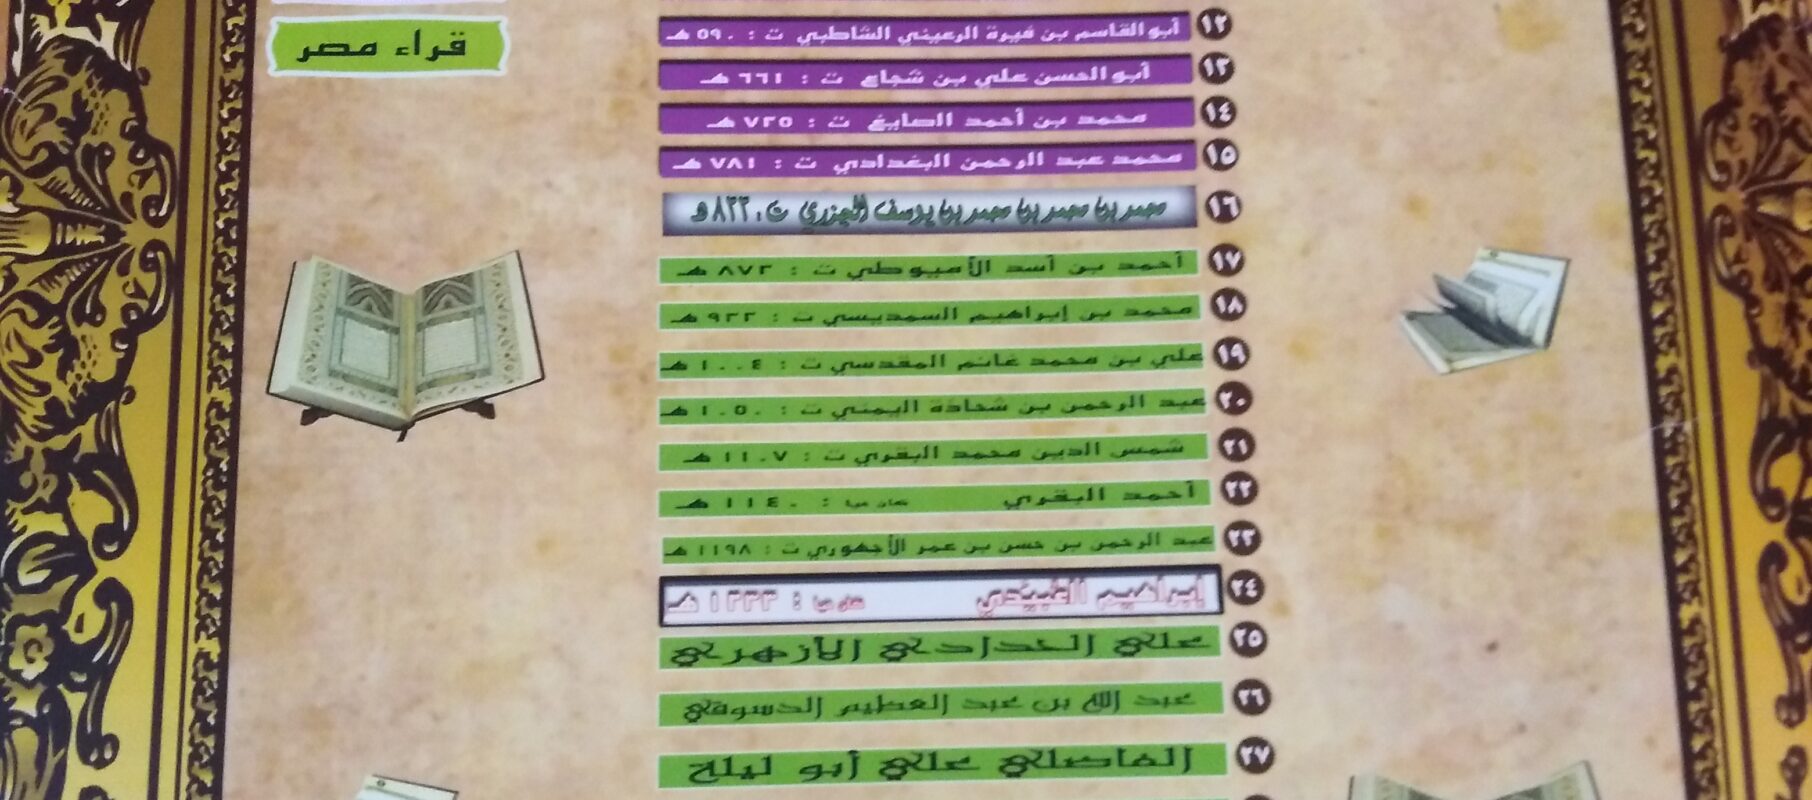 قراء مصر
١٢ أبو القاسم بن فيرة الرعيني الشاطبي ت : ٥٩٠ هـ
١٣ أبو الحسن علي بن شجاع ت : ٦٦١ هـ
١٤ محمد بن أحمد الصايغ ت : ٧٢٥ هـ
١٥ محمد عبد الرحمن البغدادي ت : ٧٨١ هـ
١٦ محمد بن محمد بن محمد بن يوسف الجزري ت . ٨٣٣ هـ
١٧ أحمد بن أسد الأميوطي ت : ٨٧٢ هـ
١٨ محمد بن إبراهيم السمديسي ت : ٩٣٢ هـ
١٩ علي بن محمد غانم المقدسي ت : ١٠٠٤ هـ
٢٠ عبد الرحمن بن شحاذة اليمني ت : ١٠٥٠ هـ
٢١ شمس الدين محمد البقري ت : ١١٠٧ هـ
٢٢ أحمد البقري كان حيا : ١١٤٠ هـ
٢٣ عبد الرحمن بن حسن بن عمر الأجهوري ت : ١١٩٨ هـ
٢٤ إبراهيم العبيدي كان حيا : ١٢٣٣ هـ
٢٥ علي الحدادي الأزهري
٢٦ عبد الله بن عبد العظيم الدسوقي
٢٧ الفاضلي علي أبو ليلة